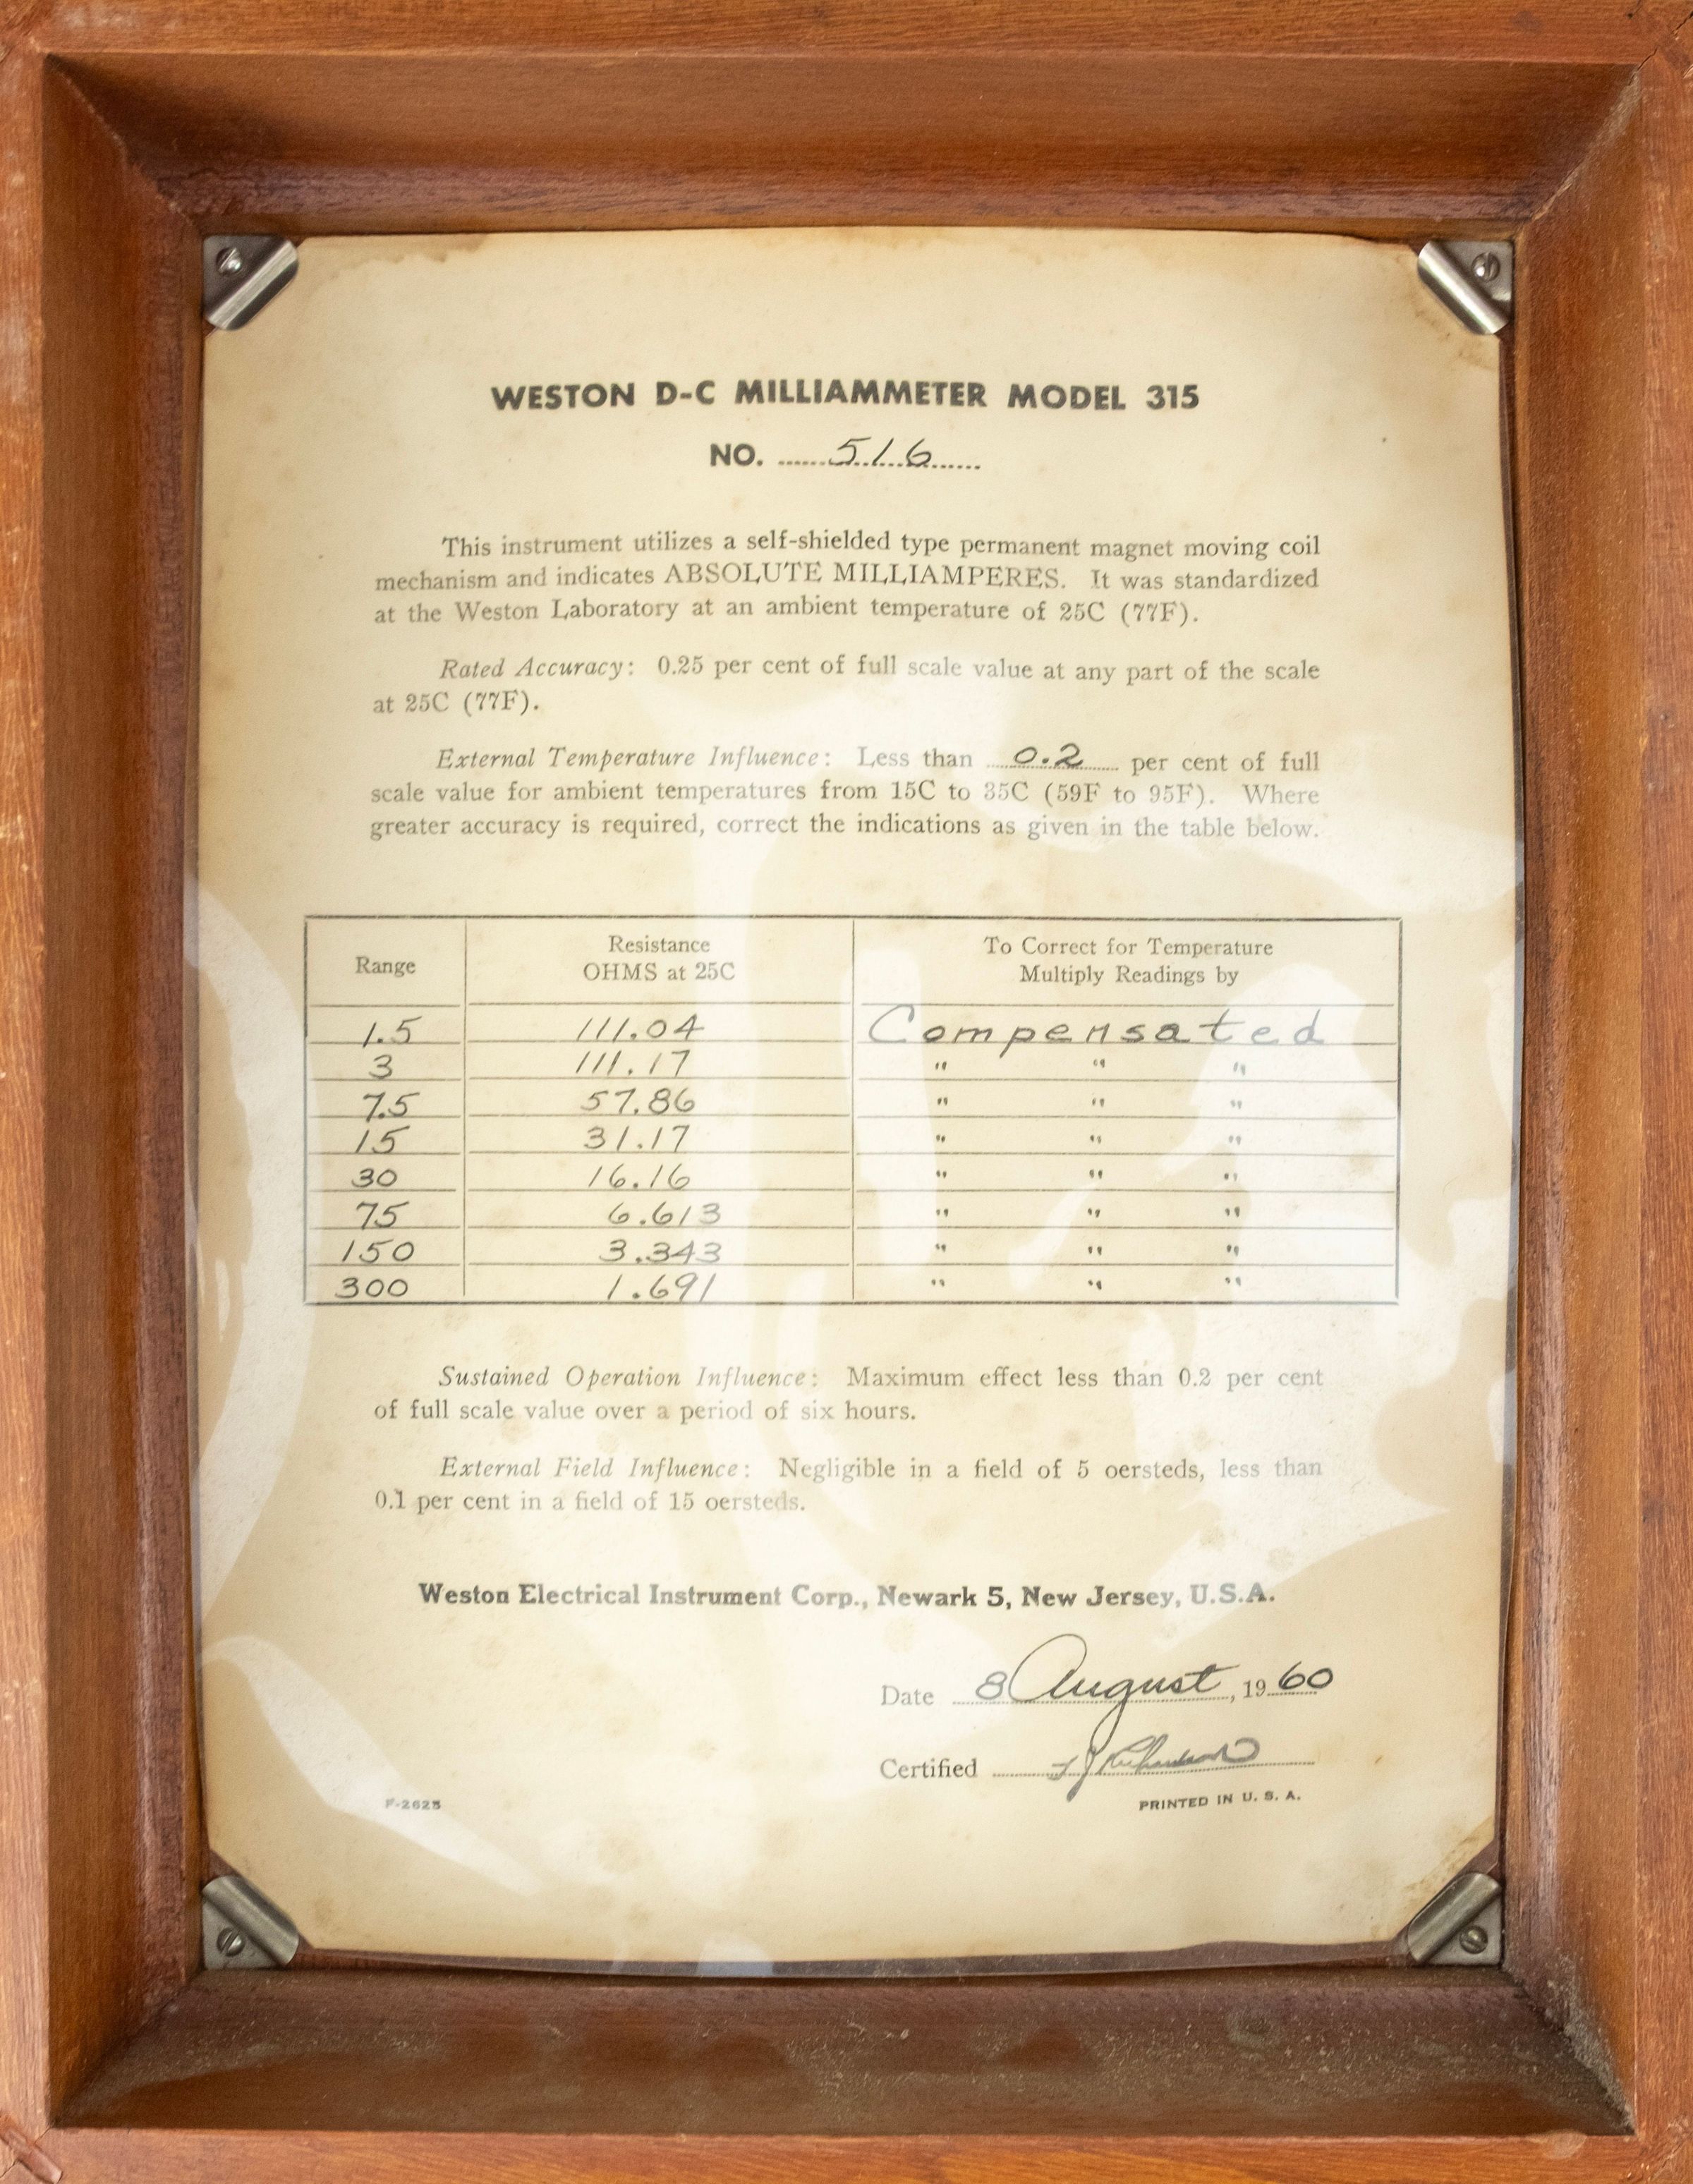 WESTON D-C MILLIAMMETER MODEL 315
NO. 516
This instrument utilizes a self-shielded type permanent magnet moving coil
mechanism and indicates ABSOLUTE MILLIAMPERES. It was standardized
at the Weston Laboratory at an ambient temperature of 25C (77F).
Rated Accuracy: 0.25 per cent of full scale value at any part of the scale
at 25C (77F).
External Temperature Influence: Less than 0.2 per cent of full
scale value for ambient temperatures from 15C to 35C (59F to 95F). Where
greater accuracy is required, correct the indications as given in the table below.
Range Resistance OHMS at 25C To Correct for Temperature Multiply Readings by
1.5 111.04 Compensated
3 111.17 " " "
7.5 57.86 " " "
15 31.17 " " "
30 16.16 " " "
75 6.613 " " "
150 3.343 " " "
300 1.691 " " "
Sustained Operation Influence: Maximum effect less than 0.2 per cent
of full scale value over a period of six hours.
External Field Influence: Negligible in a field of 5 oersteds, less than
0.1 per cent in a field of 15 oersteds.
Weston Electrical Instrument Corp., Newark 5, New Jersey, U.S.A.
Date 8 August, 1960
Certified
F-2625 PRINTED IN U. S. A.